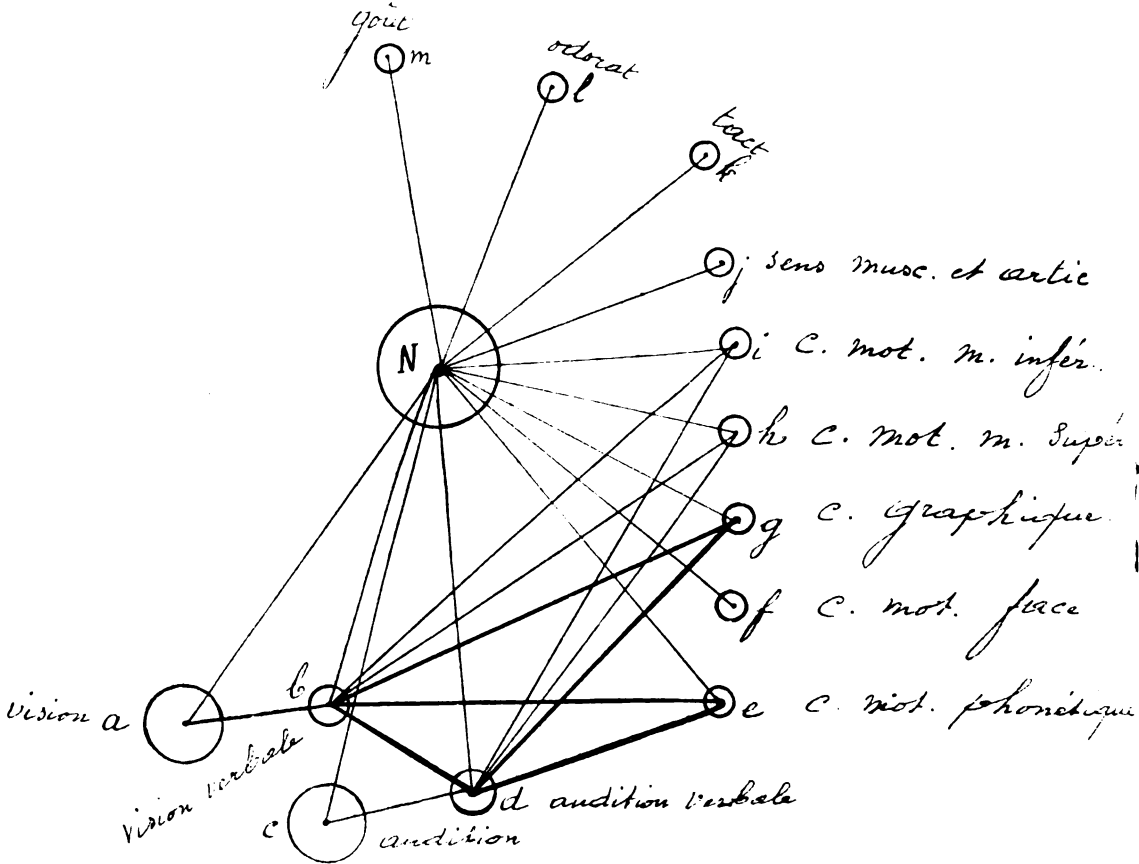 goût
m
odorat
l
tact
k
j sens musc. et artic
N
i C. mot. m. infér.
h C. mot. m. Supér
g C. graphique
f C. mot. face
b
vision a
e C. mot. phonétique
vision verbale
d audition verbale
c audition